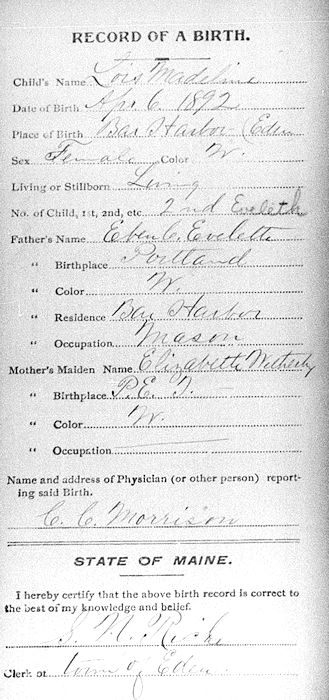 RECORD OF A BIRTH.
Child's Name Lois Madeline
Date of Birth Apr 6 1892
Place of Birth Bar Harbor (Eden
Sex Female Color W.
Living or Stillborn Living
No. of Child, 1st, 2nd, etc. 2nd Eveleth
Father's Name Eben C. Eveleth
" Birthplace Portland
" Color W.
" Residence Bar Harbor
" Occupation Mason
Mother's Maiden Name Elizabeth
" Birthplace P.E.I.
" Color W.
" Occupation
Name and address of Physician (or other person) report-
ing said Birth.
C. C. Morrison
STATE OF MAINE.
I hereby certify that the above birth record is correct to
the best of my knowledge and belief.
Clerk of town of Eden.